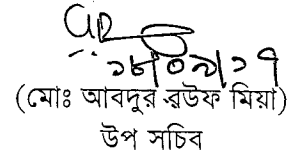 ১৮০৯১৭
(মোঃ আবদুর রউফ মিয়া)
উপ সচিব